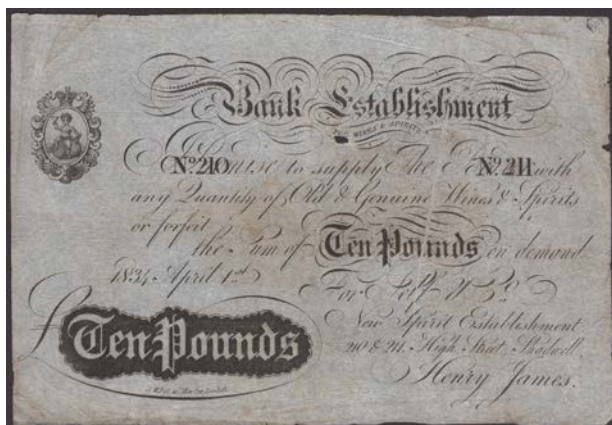 Bank Establishment
FOR WINES & SPIRITS
I Promise to supply The with
Nº 210 Nº 211
any Quantity of Old & Genuine Wines & Spirits
or forfeit
the Sum of Ten Pounds on demand
1834 April 1st
For Self & Co
New Spirit Establishment
210 & 211 High Street, Shadwell.
£ Ten Pounds
Henry James.